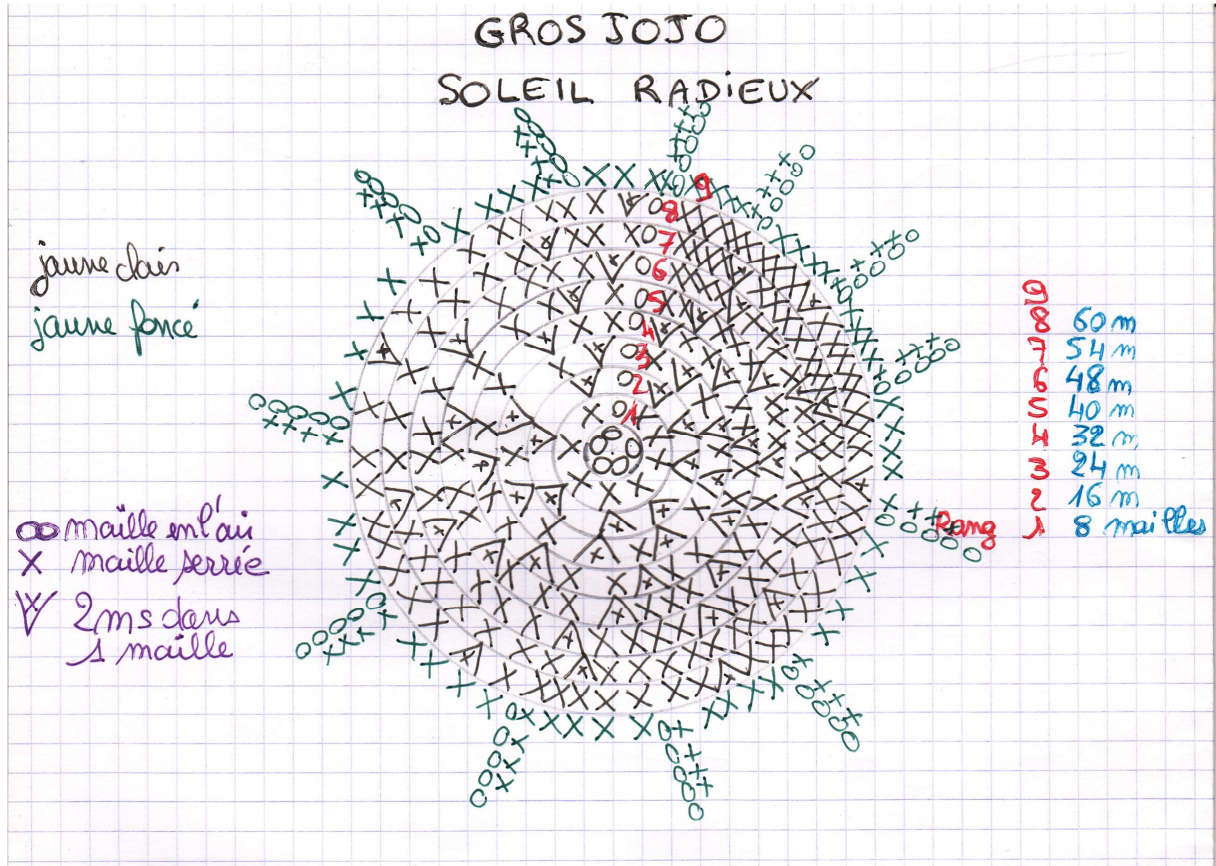 GROS JOJO
SOLEIL RADIEUX
jaune clair
jaune foncé
maille en l'air
X maille serrée
2ms dans
1 maille
9
8
7
6
5
4
3
2
1
9
8 60 m
7 54 m
6 48 m
5 40 m
4 32 m
3 24 m
2 16 m
Rang 1 8 mailles